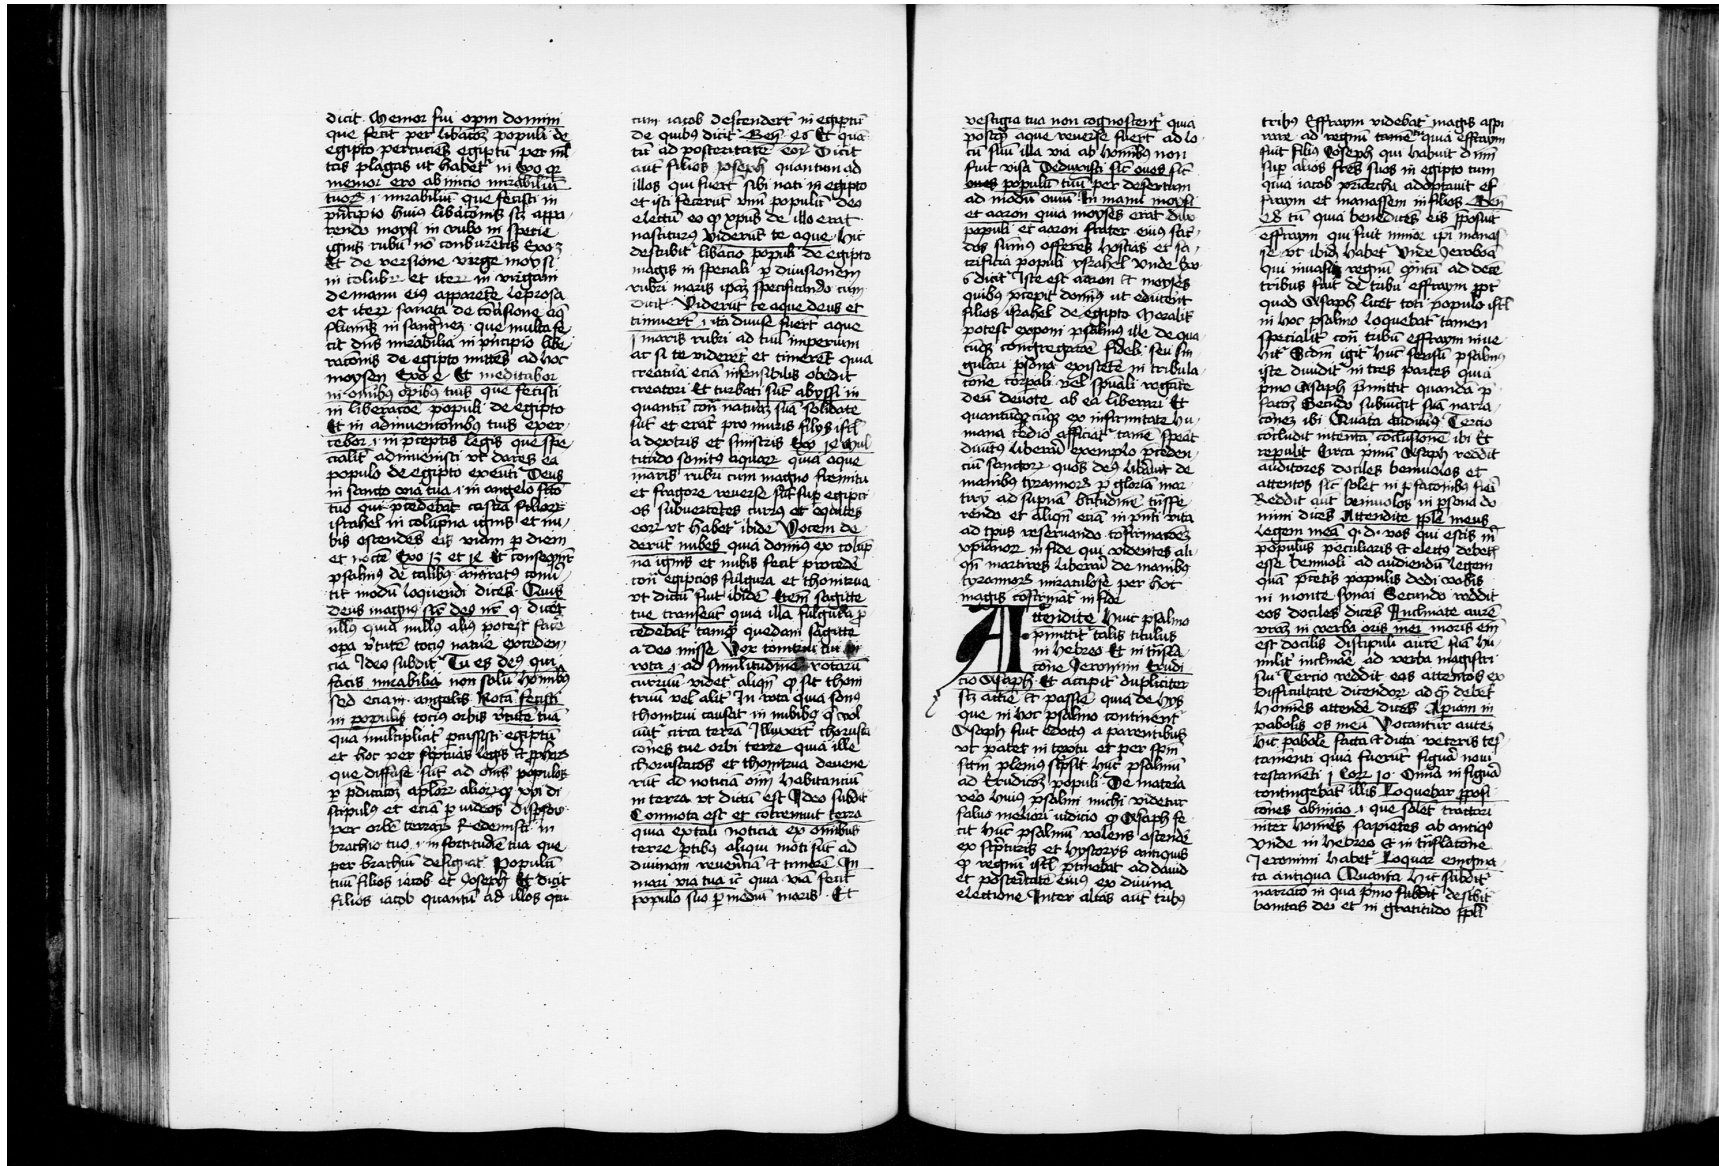 dicit Memor fui opm domini
que fecit per libacoȝ populi de
egipto percuciēs egiptū per ml
tas plagas ut habet in Exo qr
memor ero ab inicio mirabiliū
tuorȝ .i. mirabiliū que fecisti in
pncipio huius libacionis scȝ appa
rendo moysi in rubo in specie
ignis rubū nō conburētis Exo 3
Et de versione virge moysi
in colubrȝ et iterȝ in virgam
de manu eiꝰ apparēte leprosa
et iterȝ sanata de cōusione aqȝ
fluminis in sangꝰnez que multa fe
cit dns mirabilia in pncipio libe
racionis de egipto mittēs ad hoc
moysen Exo e Et meditabor
in omibꝰ opibꝰ tuis que fecisti
in liberacōe populi de egipto
Et in adinuencōnibus tuis exer
cebor .i. in pceptis legis que spe
cialit adinuenisti vt dares ea
populo de egipto exeūti Deus
in sancto via tua .i. in angelo scō
tuo qui pcedebat castra filiorȝ
israhel in columpna ignis et nu
bis ostendēs eis viam p diem
et noctē Exo 13 et 14 Et conseqnt
psalmꝰ de talibꝰ amiratꝰ cōmu
tat modū loquendi dicēs Quis
deus magnꝰ sic deo nr q d dicet
nllus quia nullꝰ aliꝰ potest facē
opa vtutē tociꝰ nature exceden
cia Ideo subdit Tu es deꝰ qui
facis mirabilia non solū homibꝰ
sed eciam angelis Notā fecisti
in populis tocius orbis vtutē tuā
quia multiplicit pcussisti egiptū
et hoc per scpturas legis et pphȝ
que diffuse sūt ad oms populos
p pdicacoȝ aplorȝ aliorȝ qȝ xpi di
scipulꝰ et eciā p iudeos dispsos
per orbē terrarȝ Redemisti in
brachio tuo .i. in fortitudīe tua que
per brachiū designat Populū
tuū filios iacob et Joseph Et dicit
filios iacob quantū ad illos qui
cum iacob descendert in egiptū
de quibus dicit Gen 46 Et quā
tū ad posteritatē eorȝ Dicit
aūt filios joseph quantum ad
illos qui fuert sibi nati in egipto
et isti fecerūt vnū populū deo
electū eo qȝ xpus de illo erat
nascitura Viderūt te aque Hic
describit libacio populi de egipto
magis in speciali p diuisionem
rubri maris ipam specificando cum
dicit Viderūt te aque deus et
timuert .i. ita diuise fuert aque
maris rubri ad tuū imperium
ac si te viderēt et timerēt quia
creatura eciā insensibilis obedit
creatori Et turbati sūt abyssi in
quantū contȝ naturaȝ suā solidate
sūt et erāt pro muris filijs isrl
a dextris et sinistris Exo 14 Mul
titudo sonitꝰ aquarȝ quia aque
maris rubri cum magno fremitu
et fragore reuerse sūt sup egipci
os subuertētes currus et equites
eorȝ vt habet ibidē Vocem de
derūt nubes quia dominꝰ ex colūp
na ignis et nubis fecit procedē
contȝ egipcios fulgura et thonitrua
vt dictū fuit ibidē Etem sagitte
tue transeūt quia illa fulgura p
cedebāt tamqȝ quedam sagitte
a deo misse Vox tonitrui tui in
rota .i. ad similitudinē rotarū
curruū videt aliqn qȝ sit thoni
truū vel alit In rota quia sonꝰ
thonitrui causat in nubibꝰ q vol
uūt circa terrā Illuxert chorusca
cōnes tue orbi terre quia ille
choruscacōes et thonitrua deuene
rūt ad noticiā oīm habitanciū
in terra vt dictū est Ideo subdit
Commota est et cōtremuit terra
quia ex tali noticia ex omibus
terre ptibꝰ aliqui moti sūt ad
diuinam reuerēciā et timorē In
mari via tua ic quia viā fecit
populo suo p mediū maris Et
vestigia tua non cognoscent quia
postqȝ aque reuerse fuert ad lo
cū suū illa via ab homibꝰ non
fuit visa Deduxisti sic oues sic
oues populū tuū per desertum
ad modū ouiū In manu moysi
et aaron quia moyses erat dux
populi et aaron frater eius sac
dos sūmus offerēs hostias et sa
crificia populi ysrahel vnde Exo
6 dicit Iste est aaron et moyses
quibus pcepit dominꝰ ut educerēt
filios israhel de egipto Moralit
potest exponi psalmꝰ ille de qua
cūqȝ congregacōe fideli seu sin
gulari psona existēte in tribula
cōne corpali vel spūali rogāte
deū deuote ab ea liberari Et
quantūcūqȝ ex infirmitate hu
mana tedio afficiat tamē sperat
diuinꝰ liberū exemplo pceden
ciū sanctorȝ quos deꝰ libauit de
manibus tyrannorȝ p gloriam mar
tirij ad supnā btitudinē trāsfe
rendo et aliqn eciā in pnti vita
ad tpus reseruando cōfirmacōem
xpianorȝ in fide qui videntes ali
qn martires liberū de manibꝰ
tyrannorȝ miraculose per hoc
magis cōfirmāt in fide
Attendite Huic psalmo
pmittit talis titulus
in hebreo Et in trāsla
cōne Jeronimi Erudi
cio Asaph Et accipit dupliciter
scȝ actiue et passiue quia de hijs
que in hoc psalmo continent
Asaph fuit edoctus a parentibus
vt patet in textu et per spm
scm plenius scpsit hūc psalmū
ad Erudicoȝ populi De materia
vero huiꝰ psalmi michi videtur
saluo meliori iudicio qȝ Asaph fe
cit hūc psalmū volens ostendē
ex scpturis et hystorijs antiquis
qȝ regnū isrl ptinebat ad dauid
et postertatē eius ex diuina
electione Inter altas aūt tribꝰ
tribus Effraym videbat magis aspi
rare ad regnū tamē quia effraym
fuit filius Joseph qui habuit dnm
sup alios frēs suos in egipto tum
quia iacob priarcha adoptauit ef
fraym et manassem in filios Gen
48 tū quia benedicēs eis pposuit
effraym qui fuit minor ipi manas
se vt ibidē habet Vnde Jeroboā
qui inuasit regnū quātū ad decē
tribus fuit de tribu effraym ppt
quod Asaph licet toti populo isrl
in hoc psalmo loquebat tamen
specialit contȝ tribū effraym inue
hit Scdm igit hūc sensū psalmꝰ
iste diuidit in tres partes quia
pmo Asaph pmittit quandā p
facoȝ Secūdo subiungit suā narra
cōnez ibi Quanta audiuiꝰ Tercio
cōcludit intentā conclusionē ibi Et
repulit Circa pmū Asaph reddit
auditores dociles beniuolos et
attentos sic solet in pfacōnibꝰ fieri
Reddit aūt beniuolos in psona do
mini dicēs Attendite pple meus
legem meā q.d. vos qui estis in
populus peculiaris et electꝰ debet
esse beniuoli ad audiendū legem
quā pcetis populis dedi vobis
in monte synai Secundo reddit
eos dociles dicēs Inclinate aurē
vram in verba oris mei moris em
est docilis discipuli aurē suā hu
milit inclinare ad verba magistri
sui Tercio reddit eos attentos ex
difficultate dicendorȝ ad q debēt
homīes attendē dicēs Apiam in
pabolis os meū Vocantur autez
hic pabole facta et dicta veteris tes
tamenti quia fuerūt figura noui
testamēti 1 Corr 10 Omnia in figurā
contingebāt illis Loquebar pposi
cōnes ab inicio .i. que solēt tractari
inter homīes sapiētes ab antiqo
Vnde in hebreo et in trāslacōne
Jeronimi habet Loquar enigma
ta antiqua Quanta Hic subdit
narraco in qua pmo subdit describit
bonitas dei et in gratitudo ppli